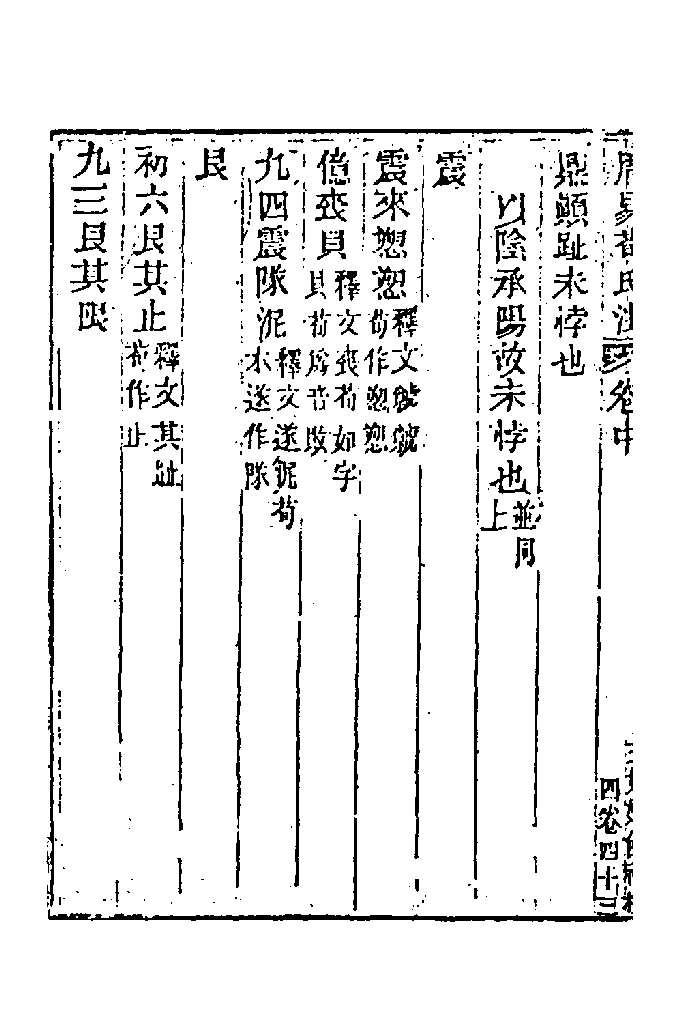 周易荀氏注 卷中
四卷四十三
鼎顚趾未悖也
以陰承陽故未悖也並同上
震
震來愬愬釋文虩虩荀作愬愬
億喪貝釋文喪荀如字貝荀爲音敗
九四震隊泥釋文遂泥荀本遂作隊
艮
初六艮其止釋文其趾荀作止
九三艮其限